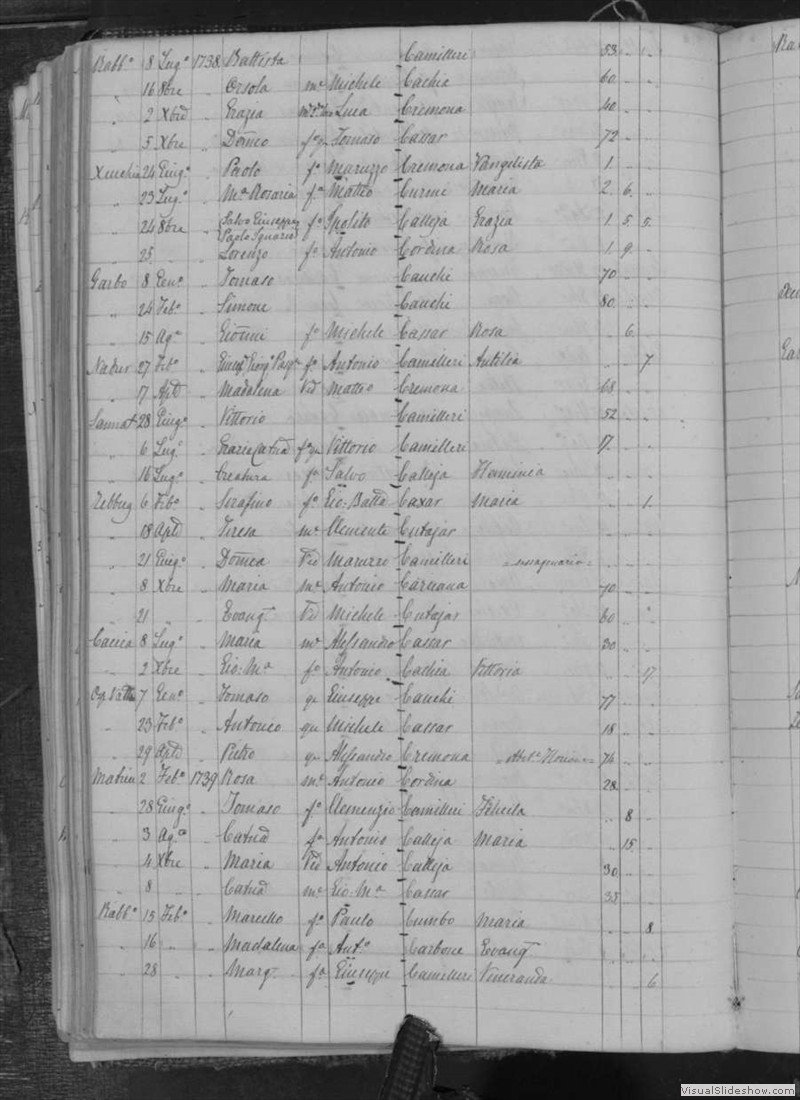 Rabb.º 8 Lug.º 1738 Battista Camilleri 53 .. 1
" 16 8bre " Orsola m.e Michele Cachia 60
" 2 Xbre " Grazia Luca Cremona 40
" 5 Xbre " Domco Tomaso Cassar 72
Xeuchia 24 Giug.º " Paolo f.º Maruzzo Cremona Vangelista 1
" 23 Lug.º " M.a Rosaria f.a Matteo Curmi Maria 2 6
" 24 8bre " Salvo Giuseppe Paolo Ignazio f.º Ipolito Calleja Grazia 1 5 5
" 25 " " Lorenzo f.º Antonio Cordina Rosa 1 9
Garbo 8 Gen.º " Tomaso Cauchi 70
" 24 Feb.º " Simone Cauchi 80
" 15 Ag.º " Gionni f.º Michele Cassar Rosa .. 6
Nadur 27 Feb.º " f.º Antonio Camilleri Attilia .. .. 7
" 17 Aple " Madalena Vid Matteo Cremona 68
Sannat 28 Giug.º " Vittorio Camilleri 52
" 6 Lug.º " Vittorio Camilleri 17
" 16 Lug.º " Creatura f.º Salvo Calleja Flaminia
Zebbug 6 Feb.º " Serafino f.º Gio. Batta Caxar Maria .. .. 1
" 18 Aple " Teresa m.e Clemente Cutajar
" 21 Giug.º " Domca Vid Maruzzo Camilleri
" 8 Xbre " Maria m.e Antonio Caruana 70
" 21 " " Evang. Vid Michele Cutajar 60
Caccia 8 Lug.º " Maria m.e Alessandro Cassar 30
" 2 Xbre " Gio. M.a f.º Antonio Cachia Vittoria .. .. 17
7 Gen.º " Tomaso qm Giuseppe Cauchi 77
" 23 Feb.º " Antonio qm Michele Cassar 18
" 29 Aple " Pietro qm Alessandro Cremona 74
Matrice 2 Feb.º 1739 Rosa m.e Antonio Cordina 28
" 28 Giug.º " Tomaso f.º Clemenzio Camilleri Felicita .. 8
" 3 Ag.º " Catna f.a Antonio Calleja Maria .. 15
" 4 Xbre " Maria Vid Antonio Calleja 30
" 8 " " Catna m.e Gio. M.a Cassar 35
Rabb.º 15 Feb.º " Marcello f.º Paulo Cumbo Maria .. .. 8
" 16 " " Madalena f.a Ant.º Carbone Evang.
" 28 " " Marg. f.a Giuseppe Camilleri Veneranda .. .. 6
VisualSlideshow.com